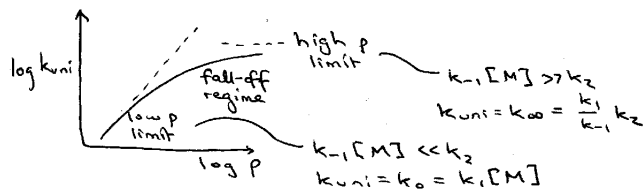 log kuni
high p
limit
fall-off
regime
low p
limit
log p
k-1[M] >> k2
kuni = k∞ = k1/k-1 k2
k-1[M] << k2
kuni = k0 = k1[M]